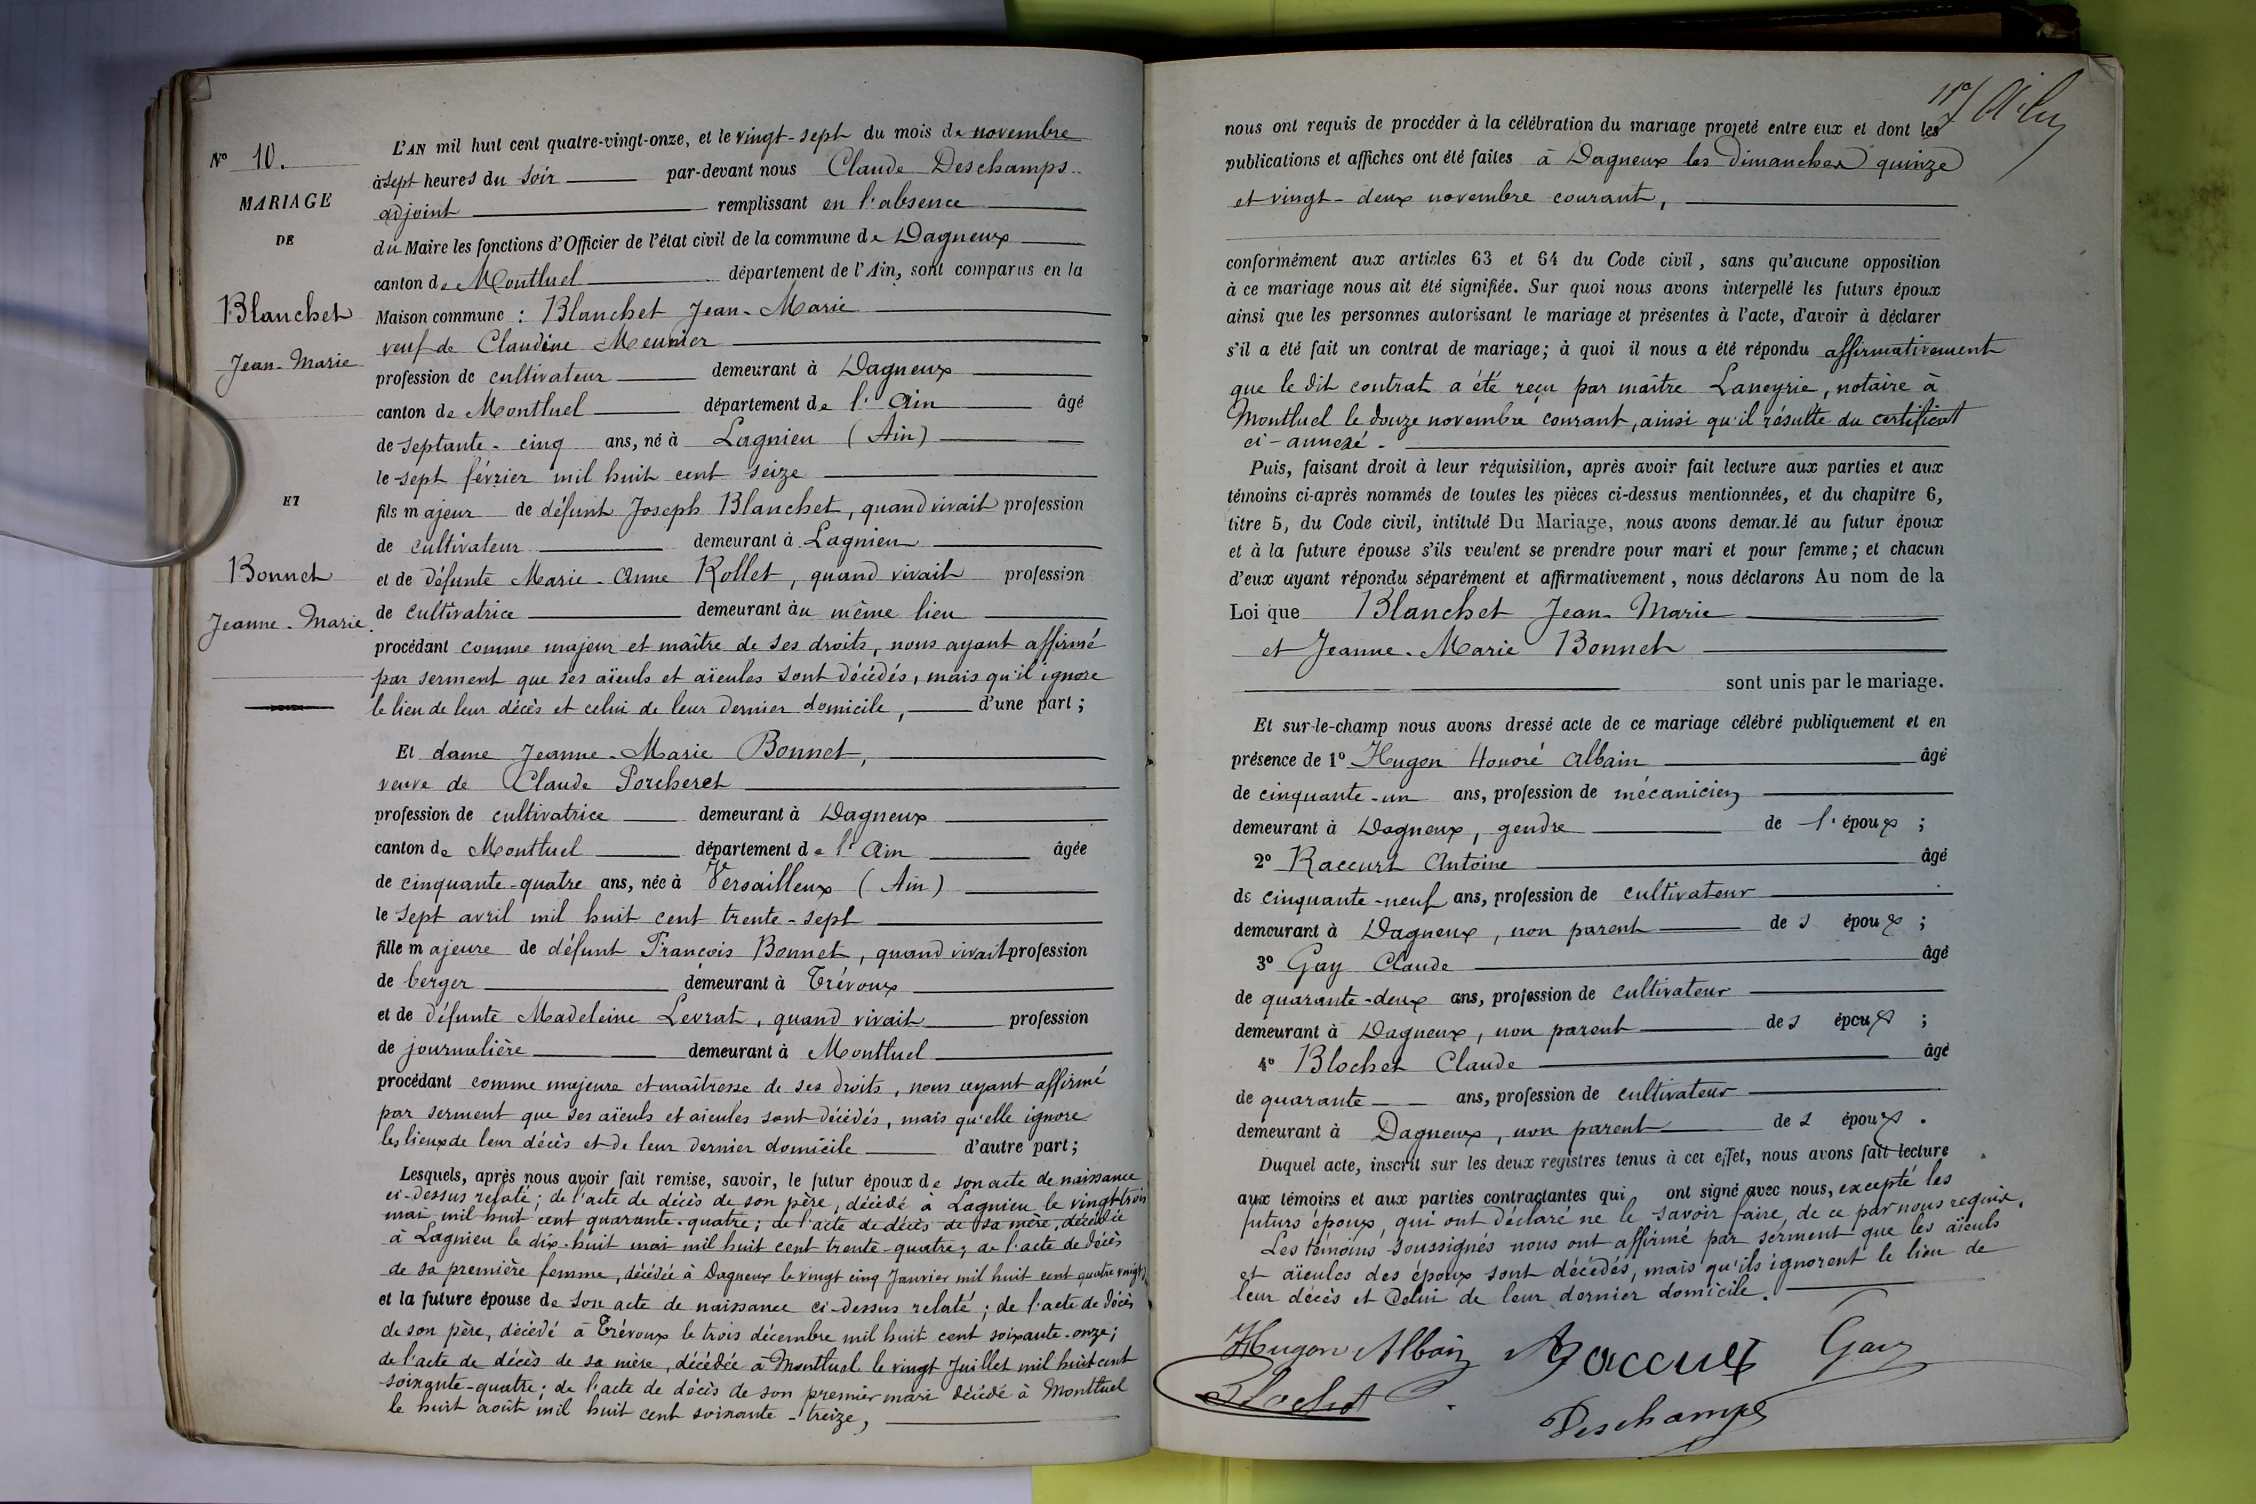 N° 10.
MARIAGE
DE
Blanchet
Jean-Marie
ET
Bonnet
Jeanne-Marie.
L'AN mil huit cent quatre-vingt-onze, et le vingt-sept du mois de novembre
à sept heures du soir par-devant nous Claude Deschamps
adjoint remplissant en l'absence
du Maire les fonctions d'Officier de l'état civil de la commune de Dagneux
canton de Montluel département de l'Ain, sont comparus en la
Maison commune : Blanchet Jean-Marie
veuf de Claudine Meunier
profession de cultivateur demeurant à Dagneux
canton de Montluel département de l'Ain âgé
de septante-cinq ans, né à Lagnieu (Ain)
le sept février mil huit cent seize
fils majeur de défunt Joseph Blanchet, quand vivait profession
de cultivateur demeurant à Lagnieu
et de défunte Marie-Anne Rollet, quand vivait profession
de cultivatrice demeurant au même lieu
procédant comme majeur et maître de ses droits, nous ayant affirmé
par serment que ses aïeuls et aïeules sont décédés, mais qu'il ignore
le lieu de leur décès et celui de leur dernier domicile, d'une part ;
Et dame Jeanne-Marie Bonnet,
veuve de Claude Porcheret
profession de cultivatrice demeurant à Dagneux
canton de Montluel département de l'Ain âgée
de cinquante-quatre ans, née à Versailleux (Ain)
le sept avril mil huit cent trente-sept
fille majeure de défunt François Bonnet, quand vivait profession
de berger demeurant à Trévoux
et de défunte Madeleine Levrat, quand vivait profession
de journalière demeurant à Montluel
procédant comme majeure et maîtresse de ses droits, nous ayant affirmé
par serment que ses aïeuls et aïeules sont décédés, mais qu'elle ignore
les lieux de leur décès et de leur dernier domicile d'autre part ;
Lesquels, après nous avoir fait remise, savoir, le futur époux de son acte de naissance
ci-dessus relaté ; de l'acte de décès de son père, décédé à Lagnieu le vingt-trois
mai mil huit cent quarante-quatre ; de l'acte de décès de sa mère, décédée
à Lagnieu le dix-huit mai mil huit cent trente-quatre ; de l'acte de décès
de sa première femme, décédée à Dagneux le vingt cinq Janvier mil huit cent quatre vingt
et la future épouse de son acte de naissance ci-dessus relaté ; de l'acte de décès
de son père, décédé à Trévoux le trois décembre mil huit cent soixante-onze ;
de l'acte de décès de sa mère, décédée à Montluel le vingt Juillet mil huit cent
soixante-quatre ; de l'acte de décès de son premier mari décédé à Montluel
le huit août mil huit cent soixante-treize,
nous ont requis de procéder à la célébration du mariage projeté entre eux et dont les
publications et affiches ont été faites à Dagneux les Dimanches quinze
et vingt-deux novembre courant,
conformément aux articles 63 et 64 du Code civil, sans qu'aucune opposition
à ce mariage nous ait été signifiée. Sur quoi nous avons interpellé les futurs époux
ainsi que les personnes autorisant le mariage et présentes à l'acte, d'avoir à déclarer
s'il a été fait un contrat de mariage ; à quoi il nous a été répondu affirmativement
que le dit contrat a été reçu par maître Laneyrie, notaire à
Montluel le douze novembre courant, ainsi qu'il résulte du certificat
ci-annexé.
Puis, faisant droit à leur réquisition, après avoir fait lecture aux parties et aux
témoins ci-après nommés de toutes les pièces ci-dessus mentionnées, et du chapitre 6,
titre 5, du Code civil, intitulé Du Mariage, nous avons demandé au futur époux
et à la future épouse s'ils veulent se prendre pour mari et pour femme ; et chacun
d'eux ayant répondu séparément et affirmativement, nous déclarons Au nom de la
Loi que Blanchet Jean-Marie
et Jeanne-Marie Bonnet
sont unis par le mariage.
Et sur-le-champ nous avons dressé acte de ce mariage célébré publiquement et en
présence de 1° Hugon Honoré Albain âgé
de cinquante-un ans, profession de mécanicien
demeurant à Dagneux, gendre de l'époux ;
2° Raccurt Antoine âgé
de cinquante-neuf ans, profession de cultivateur
demeurant à Dagneux, non parent des époux ;
3° Gay Claude âgé
de quarante-deux ans, profession de cultivateur
demeurant à Dagneux, non parent des époux ;
4° Blochet Claude âgé
de quarante ans, profession de cultivateur
demeurant à Dagneux, non parent des époux.
Duquel acte, inscrit sur les deux registres tenus à cet effet, nous avons fait lecture
aux témoins et aux parties contractantes qui ont signé avec nous, excepté les
futurs époux, qui ont déclaré ne le savoir faire, de ce par nous requis.
Les témoins soussignés nous ont affirmé par serment que les aïeuls
et aïeules des époux sont décédés, mais qu'ils ignorent le lieu de
leur décès et celui de leur dernier domicile.
Hugon Albain Raccurt Gay
Blochet
Deschamps